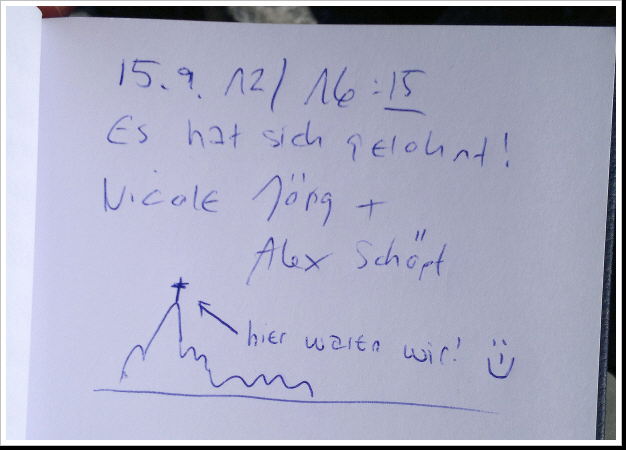 15.9.12/ 16:15
Es hat sich gelohnt!
Nicole Jörg +
Alex Schöpf
hier waren wir! Ü